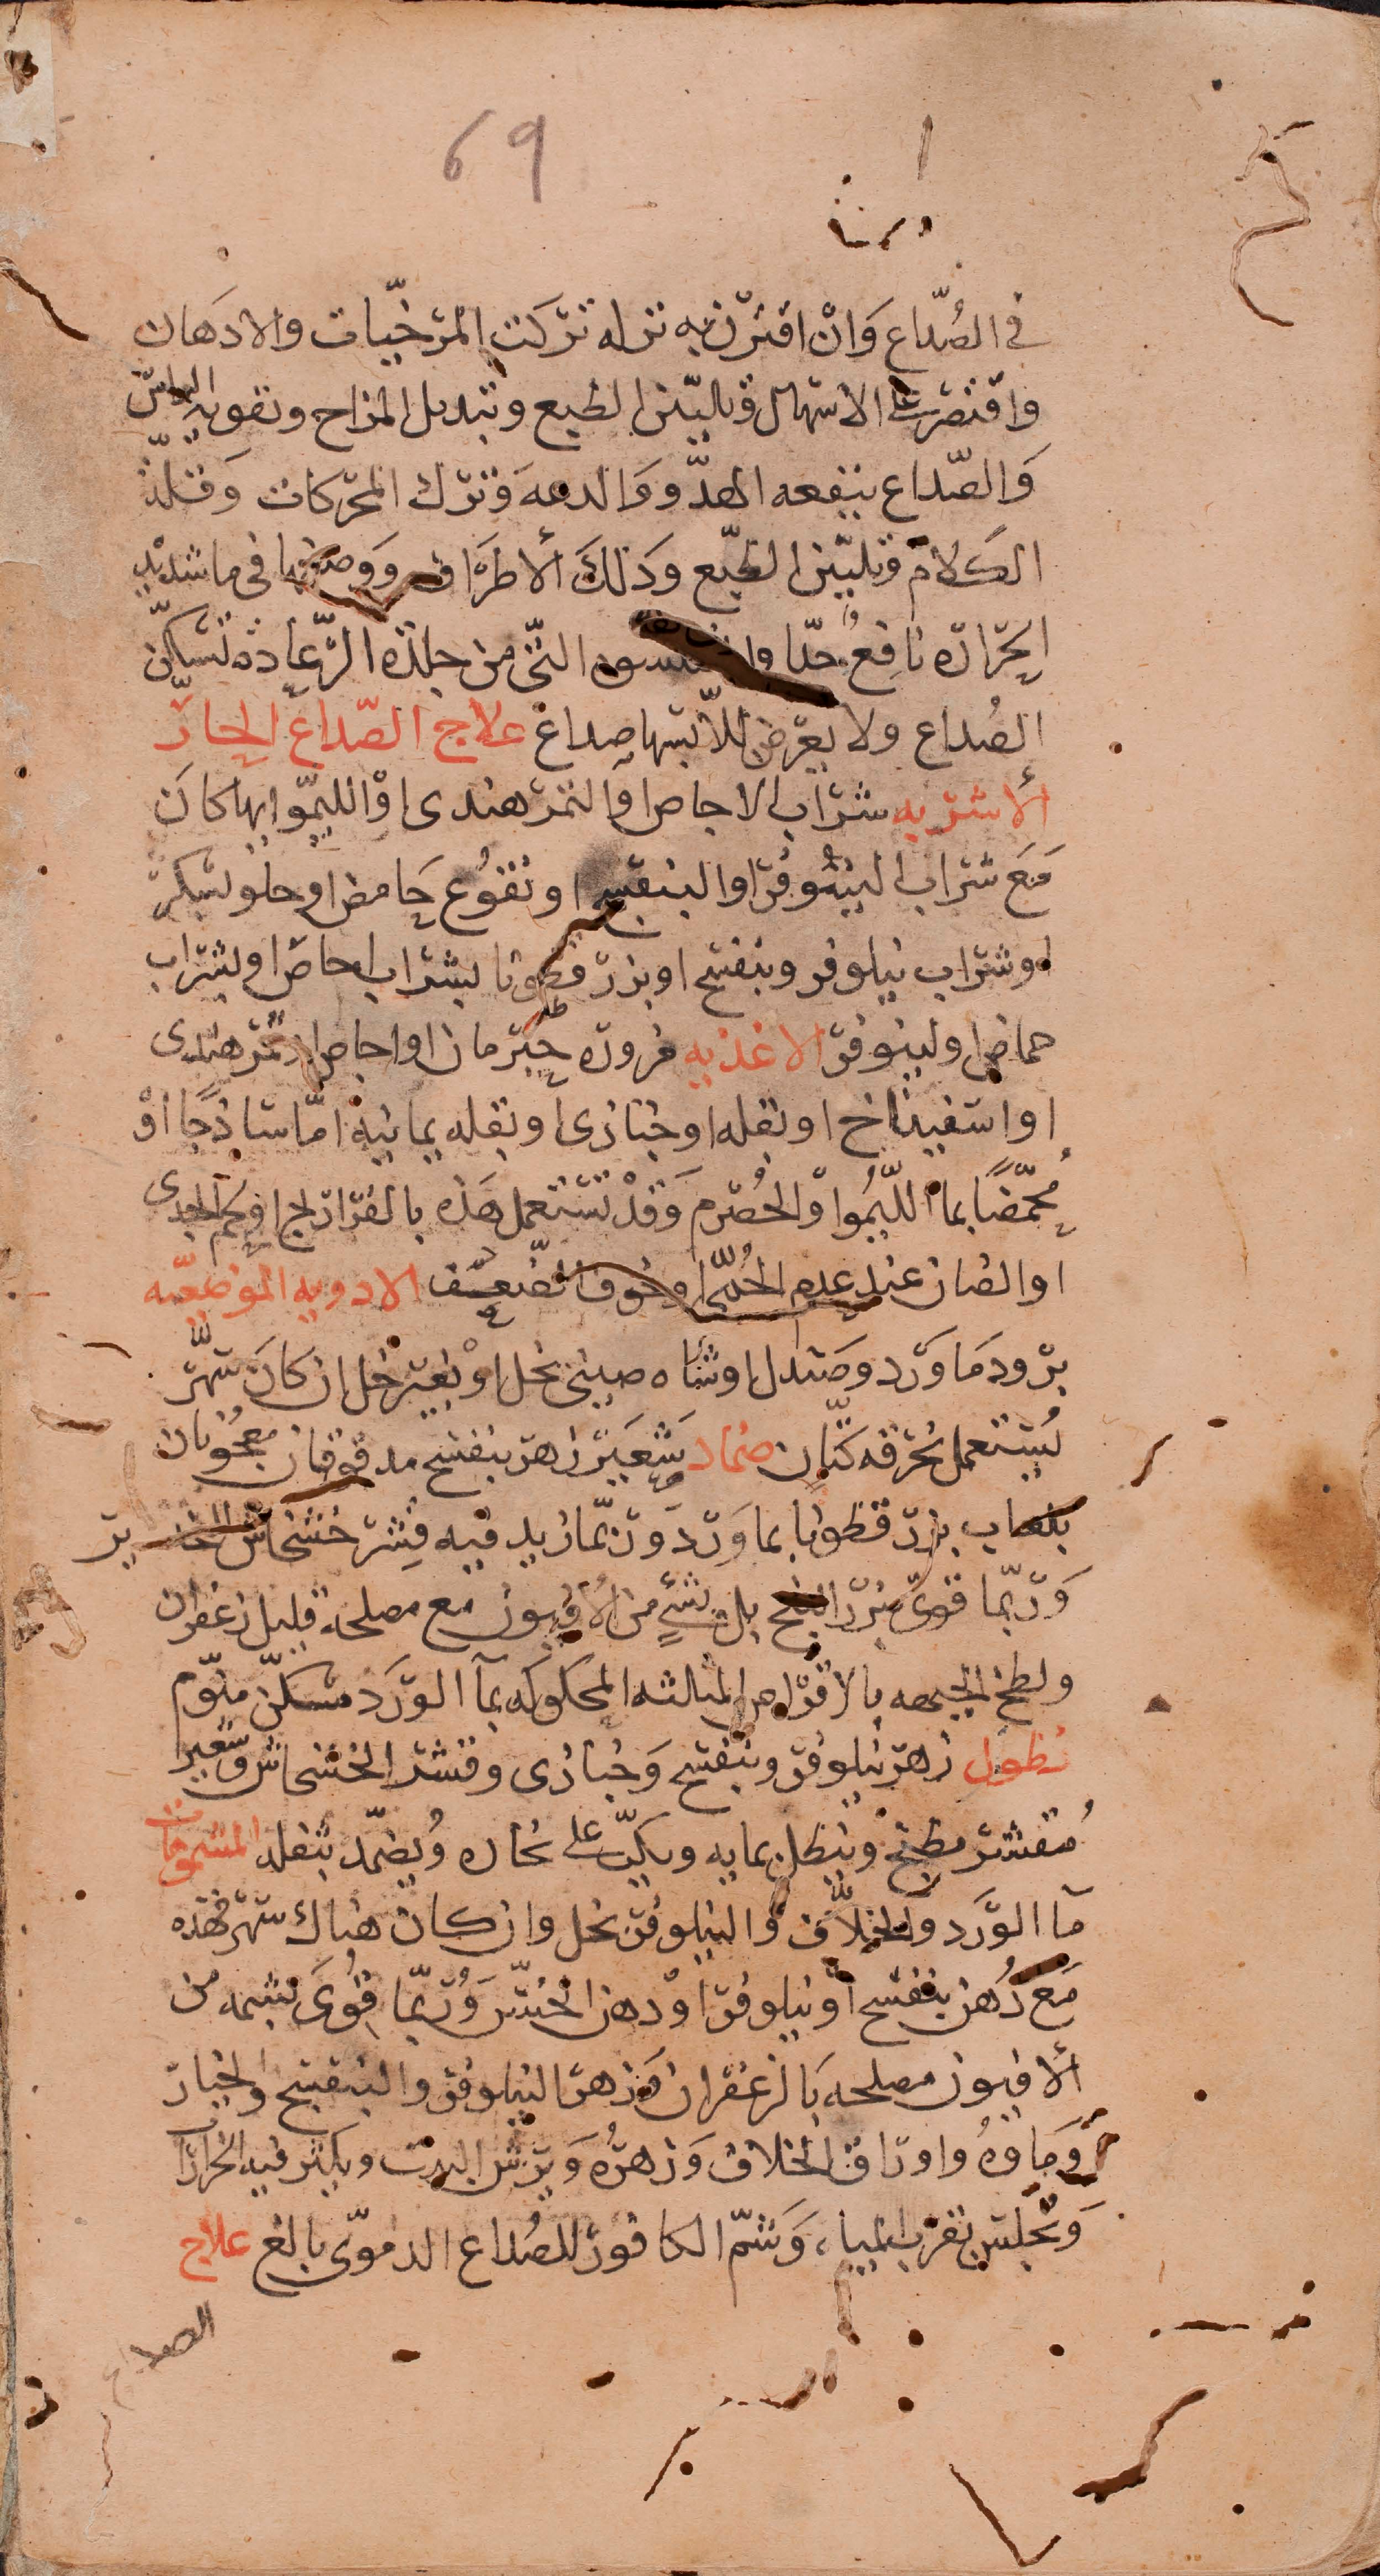 69
في الصُّداع وَانْ اقترن به نزله تركت المرخّيات والادهان
واقتصرت على الاستهال وتاليّن الطبع وتبديل المزاج وتقويه الراس
وَالصّداع ينفعه الهدّو وَالدعه وَترك المحرّكات وَقلة
الكلام وتليّين الطبّع وَدَلكَ ألاطرَاف وَوضعها فى ما شديد
الحرّارة نافِعٌ جدّا التّى من جلدة الرّعّادة تسكّن
الصُداع ولا يعرض للاّبسها صداع علاج الصّداع الحارّ
ألاشربه شرَاب الاجاص اوالتمر هندى اوْ الليمّوا ايها كان
مَعَ شرَاب النينوفر اوالبنفسج اونقوُع حَامض اوحلو بسكر
اوشرَاب نيلوفر وبنفسج اوبزر قطونا بشرَاب اجاص اوبشراب
حماض اولينوفر الاغذيه مزوره حبّ رمان اواجاص اوتمر هندى
اواسفيناخ اوبقله اوخبازى اوبقله يمانيه امّا ساذجًا اوْ
مُحمّضًا بما اللّيمُوا وَالحُصرم وَقدْ تستعمل هَذه بالفرّاريج اوَلحم الجدى
اوالضان عند عدم الحُمّى اوخوف الضّعف الادويه الموضعّيه
برود مَا وَرد وصَندل اوشاه صينى بخل اوْ بغير خل ان كانَ سَهر
يُستعمل بخرقه كتّان ضماد شعَير زهر بنفسج مدقوقان معجُونان
بلعاب بزر قطونا بما وَرد وَربّما زيد فيه قِشر خشخاش
وَربّما قوىّ ببزر البنج بل بشىءٍ من الافيون مع مصلحه قليل زعفران
ولطخ الجبهه بالاقراص المثلثه المحكوكه بمآ الوَرد مسكنّ منوّم
نطول زهر نيلوفر وبنفسج وَخبازى وقشر الخشخاش وشعير
مُقشر يطبخ وينطل بمايه ويكبّ على بخاره وُيضمّد بثفله المشمومات
مآ الوَرد والخلاّف وَالنيلوفر بخل وان كان هناك سهر فهذه
مَع دُهن بنفسج اوْ نيلوفر اوْ دهن الخسّ وَربّما قوىَ بشمه من
ألافيون مصلحه بَالزعفران وَزهر النيلوفر والبنفسج والخيار
وَمَاوهُ واورَاق الخلاف وَزهرُه وَيرش البيت ويكثر فيه الخرارَات
وَيجلس بقرب المياه وَشمّ الكافور للصُداع الدموّى بالغ علاج
الصداع